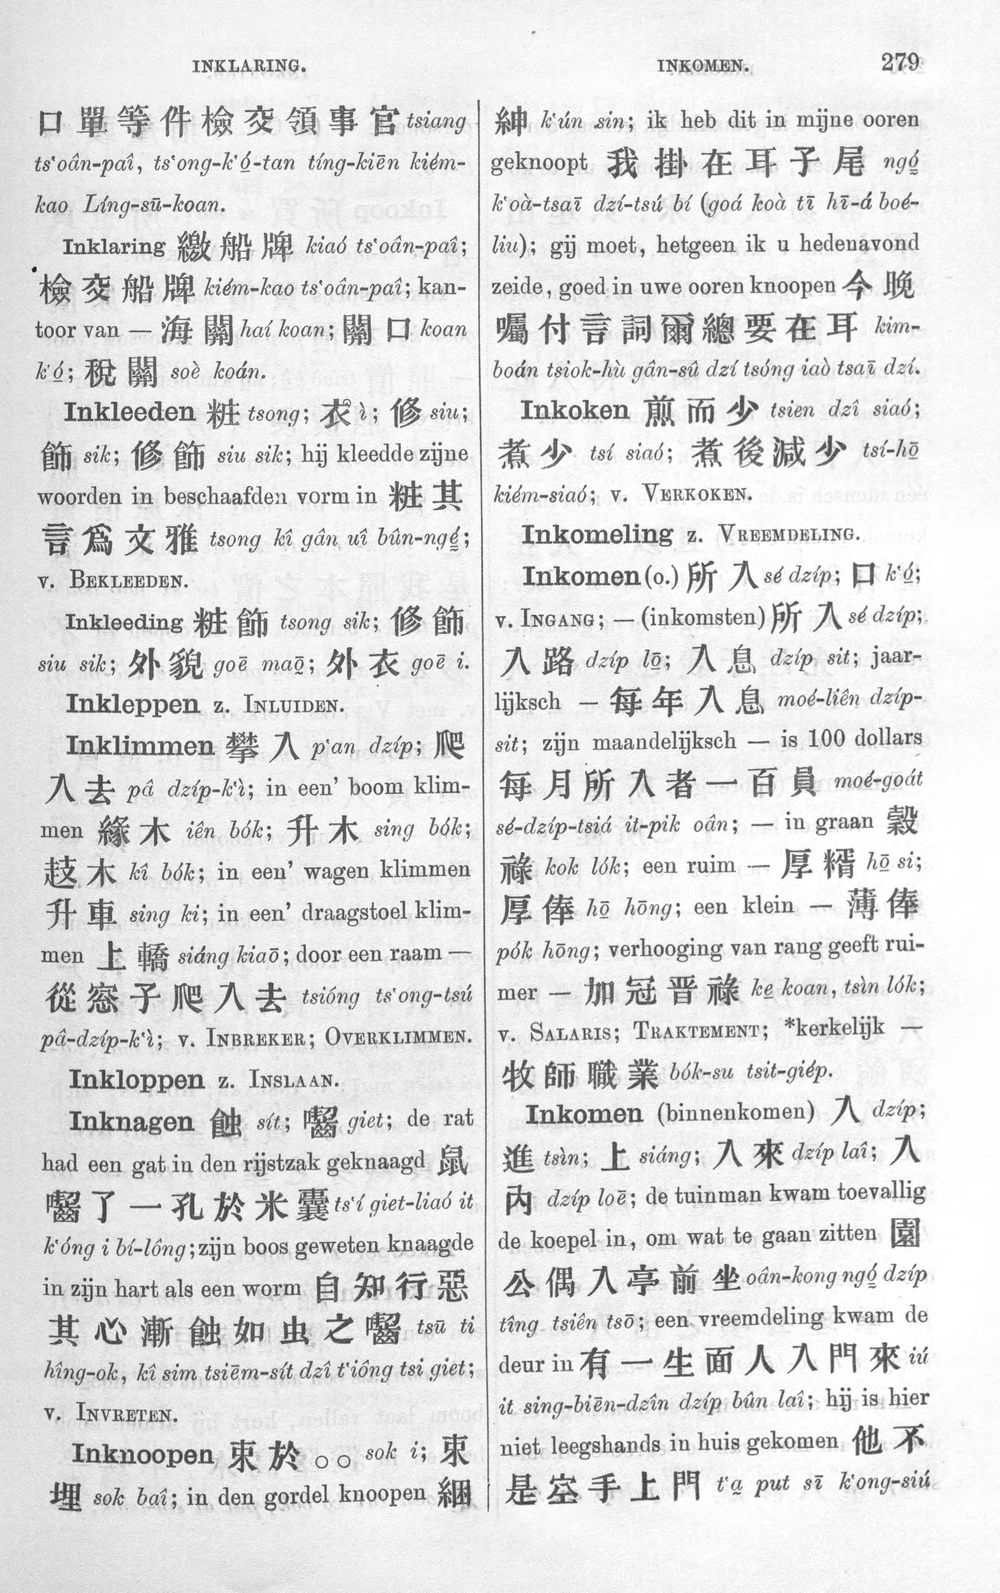 INKLARING.
INKOMEN.
279
口單等件檢交領事官 tsiang
ts‘oân-paî, ts‘ong-k‘ó̱-tan tíng-kiēn kiém-
kao Líng-sū-koan.
Inklaring 繳船牌 kiaó ts‘oân-paî;
檢交船牌 kiém-kao ts‘oân-paî; kan-
toor van — 海關 haí koan; 關口 koan
k‘ó̱; 稅關 soè koán.
Inkleeden 粧 tsong; 衣 ì; 修 siu;
飾 sik; 修飾 siu sik; hij kleedde zijne
woorden in beschaafden vorm in 粧其
言爲文雅 tsong kî gân uî bûn-ngé̱;
v. BEKLEEDEN.
Inkleeding 粧飾 tsong sik; 修飾
siu sik; 外貌 goē maō̱; 外衣 goē i.
Inkleppen z. INLUIDEN.
Inklimmen 攀入 p‘an dzíp; 爬
入去 pâ dzíp-k‘ì; in een’ boom klim-
men 緣木 iên bók; 升木 sing bók;
技木 kî bók; in een’ wagen klimmen
升車 sing ki; in een’ draagstoel klim-
men 上轎 siáng kiaō; door een raam —
從窓子爬入去 tsióng ts‘ong-tsú
pâ-dzíp-k‘ì; v. INBREKER; OVERKLIMMEN.
Inkloppen z. INSLAAN.
Inknagen 蝕 sít; 囓 giet; de rat
had een gat in den rijstzak geknaagd 鼠
囓了一孔於米囊 ts‘í giet-liaó it
k‘óng i bí-lông; zijn boos geweten knaagde
in zijn hart als een worm 自知行惡
其心漸蝕如虫之囓 tsū ti
hîng-ok, kî sim tsiēm-sít dzî t‘ióng tsi giet;
v. INVRETEN.
Inknoopen 束於○○ sok i; 束
埋 sok baî; in den gordel knoopen 綑
紳 k‘ún sin; ik heb dit in mijne ooren
geknoopt 我掛在耳子尾 ngó̱
k‘oà-tsaī dzí-tsú bí (goá koà tī hī-á boé-
liu); gij moet, hetgeen ik u hedenavond
zeide, goed in uwe ooren knoopen 今晚
囑付言詞爾總要在耳 kim-
boán tsiok-hù gân-sû dzí tsóng iaò tsaī dzí.
Inkoken 煎而少 tsien dzî siaó;
煮少 tsí siaó; 煮後減少 tsí-hō̱
kiém-siaó; v. VERKOKEN.
Inkomeling z. VREEMDELING.
Inkomen (o.) 所入 sé dzíp; 口 k‘ó̱;
v. INGANG; — (inkomsten) 所入 sé dzíp;
入路 dzíp lō̱; 入息 dzíp sit; jaar-
lijksch — 每年入息 moé-liên dzíp-
sit; zijn maandelijksch — is 100 dollars
每月所入者一百員 moé-goát
sé-dzíp-tsiá it-pik oân; — in graan 穀
祿 kok lók; een ruim — 厚糈 hō̱ si;
厚俸 hō̱ hōng; een klein — 薄俸
pók hōng; verhooging van rang geeft rui-
mer — 加冠晋祿 ke̱ koan, tsìn lók;
v. SALARIS; TRAKTEMENT; *kerkelijk —
牧師職業 bók-su tsit-giép.
Inkomen (binnenkomen) 入 dzíp;
進 tsìn; 上 siáng; 入來 dzíp laî; 入
內 dzíp loē; de tuinman kwam toevallig
de koepel in, om wat te gaan zitten 園
公偶入亭前坐 oân-kong ngó̱ dzíp
tîng tsiên tsō; een vreemdeling kwam de
deur in 有一生面人入門來 iú
it sing-biēn-dzîn dzíp bûn laî; hij is hier
niet leegshands in huis gekomen 他不
是空手上門 t‘a̱ put sī k‘ong-siú